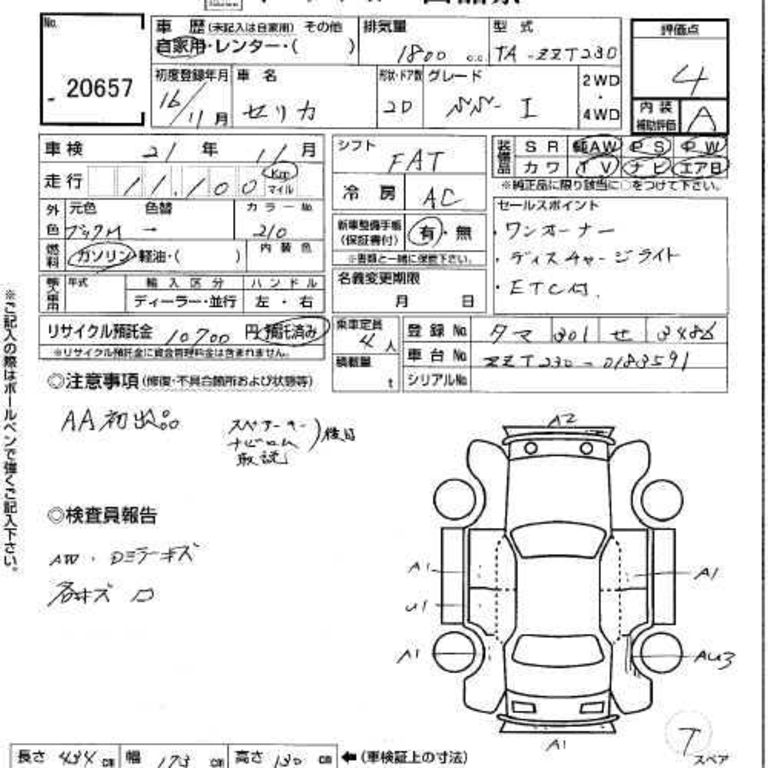 No.
20657
車歴 (未記入は自家用) その他
自家用・レンター・( )
排気量
1800 c.c.
型式
TA-ZZT230
評価点
4
初度登録年月
16/11月
車名
セリカ
形状・ドア数
2D
グレード
SS-I
2WD
・
4WD
内装
補助評価
A
車検 21年 11月
シフト
FAT
装備品
SR 純AW PS PW
カワ TV ナビ エアB
※純正品に限り該当に○をつけて下さい。
走行 11,100 Km マイル
冷房 AC
外色
元色 色替
カラーNo.
ブラックM →
210
新車整備手帳
(保証書付)
有・無
※書類と一緒に保管下さい。
セールスポイント
・ワンオーナー
・ディスチャージライト
・ETC付.
燃料
ガソリン・軽油・( )
内装色
輸入車用
年式
輸入区分
ハンドル
ディーラー・並行
左・右
名義変更期限
月 日
リサイクル預託金 10700円 預託済み
※リサイクル預託金に資金管理料金は含まれません。
乗車定員
4人
積載量
t
登録No. タマ 301 せ 3486
車台No. ZZT230-0183591
シリアルNo.
◎注意事項 (修復・不具合箇所および状態等)
AA初出品
スペアーキー
ナビロム
取説
)後日
◎検査員報告
AW・Dミラーキズ
各キズ
A2
A1
U1
A1
A1
AU3
A1
T
スペア
長さ 434cm 幅 173cm 高さ 130cm ←(車検証上の寸法)
※ご記入の際はボールペンで強くご記入下さい。